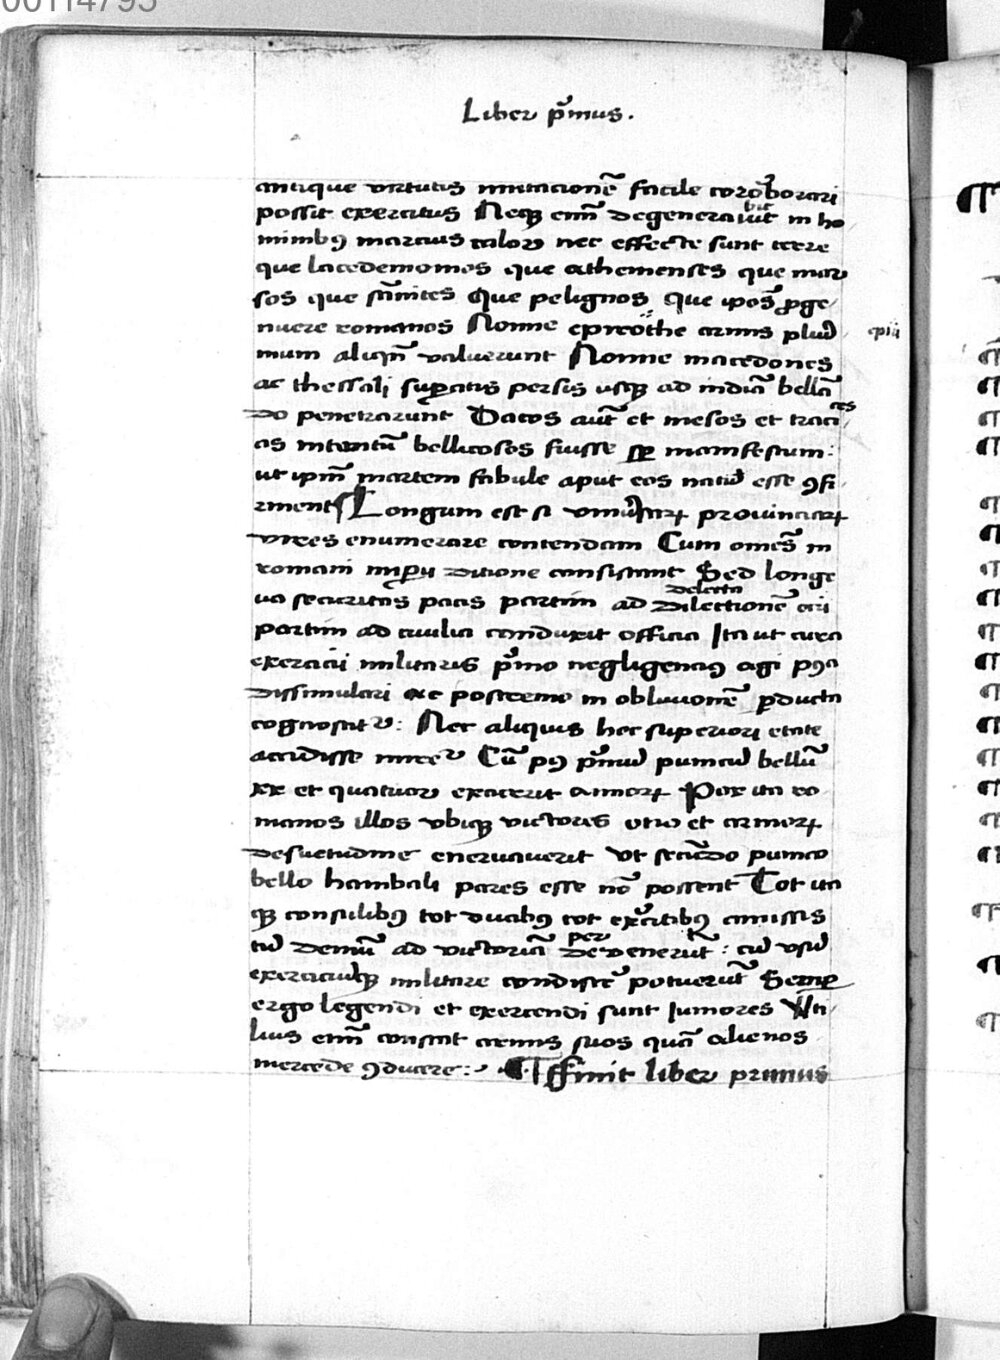 00114795
Liber p̄mus.
antique virtutis imitacionē facile coroborari
possit exercitus Neqꝫ enī degenerauit in ho
bit
minibꝰ marcius calor nec effecte sunt terre
que lacedemonios que athenienses que mar
sos que sāmites Que pelignos que ipos̄ ꝓge
nuere romanos Nonne epirothe armis plurī
epiri
mum aliqn̄ valuerunt Nonne macedones
ac thessali suꝑatis persis usqꝫ ad indiā bellā
do penetrarunt Dacos aūt et mesos et traci
ces
as intantū bellicosos fuisse sꝑ manifestum:
ut ipm̄ martem fabule aput eos natū esse ꝯfi
rment Longum est si vniūsaꝝ prouinciaꝝ
vires enumerare contendam Cum omēs in
romani imꝑii ditione consistant Sed longe
delecta
ua securitas pacis partim ad dilectionē oci
partim ad ciuilia conduxit officia Ita ut cura
exercicii militaris p̄mo negligenciꝰ agi pꝯa
dissimulari ac postremo in obliuionē ꝑducta
cognoscitᷣ: Nec aliquis hoc superiori etate
accidisse miretᷣ Cū pꝰ p̄mū punicū bellū
xx et quatuor exacerit annoꝝ Pax ita ro
manos illos vbiqꝫ victores otio et armoꝝ
desuetudine eneruauerit Vt secūdo punico
bello hanibali pares esse nō possent Tot ita
qꝫ consulibꝰ tot ducibꝰ tot exercitibꝰ amissis
per
tūc demū ad victoriā deuenerūt: cū vsū
exerciciūqꝫ militare condiscē potuerūt Semꝑ
ergo legendi et exercendi sunt Iuniores Vti
lius enī constat armis suos quā alienos
mercede ꝯducere: Finit liber primus